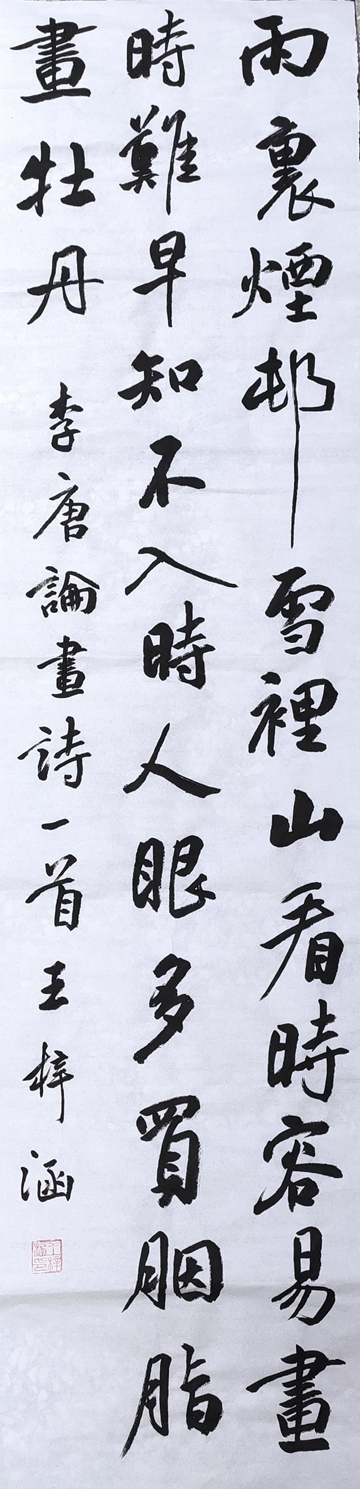 雨裏煙邨雪裡山看時容易畫
時難早知不入時人眼多買胭脂
畫牡丹 李唐論畫詩一首 王梓涵